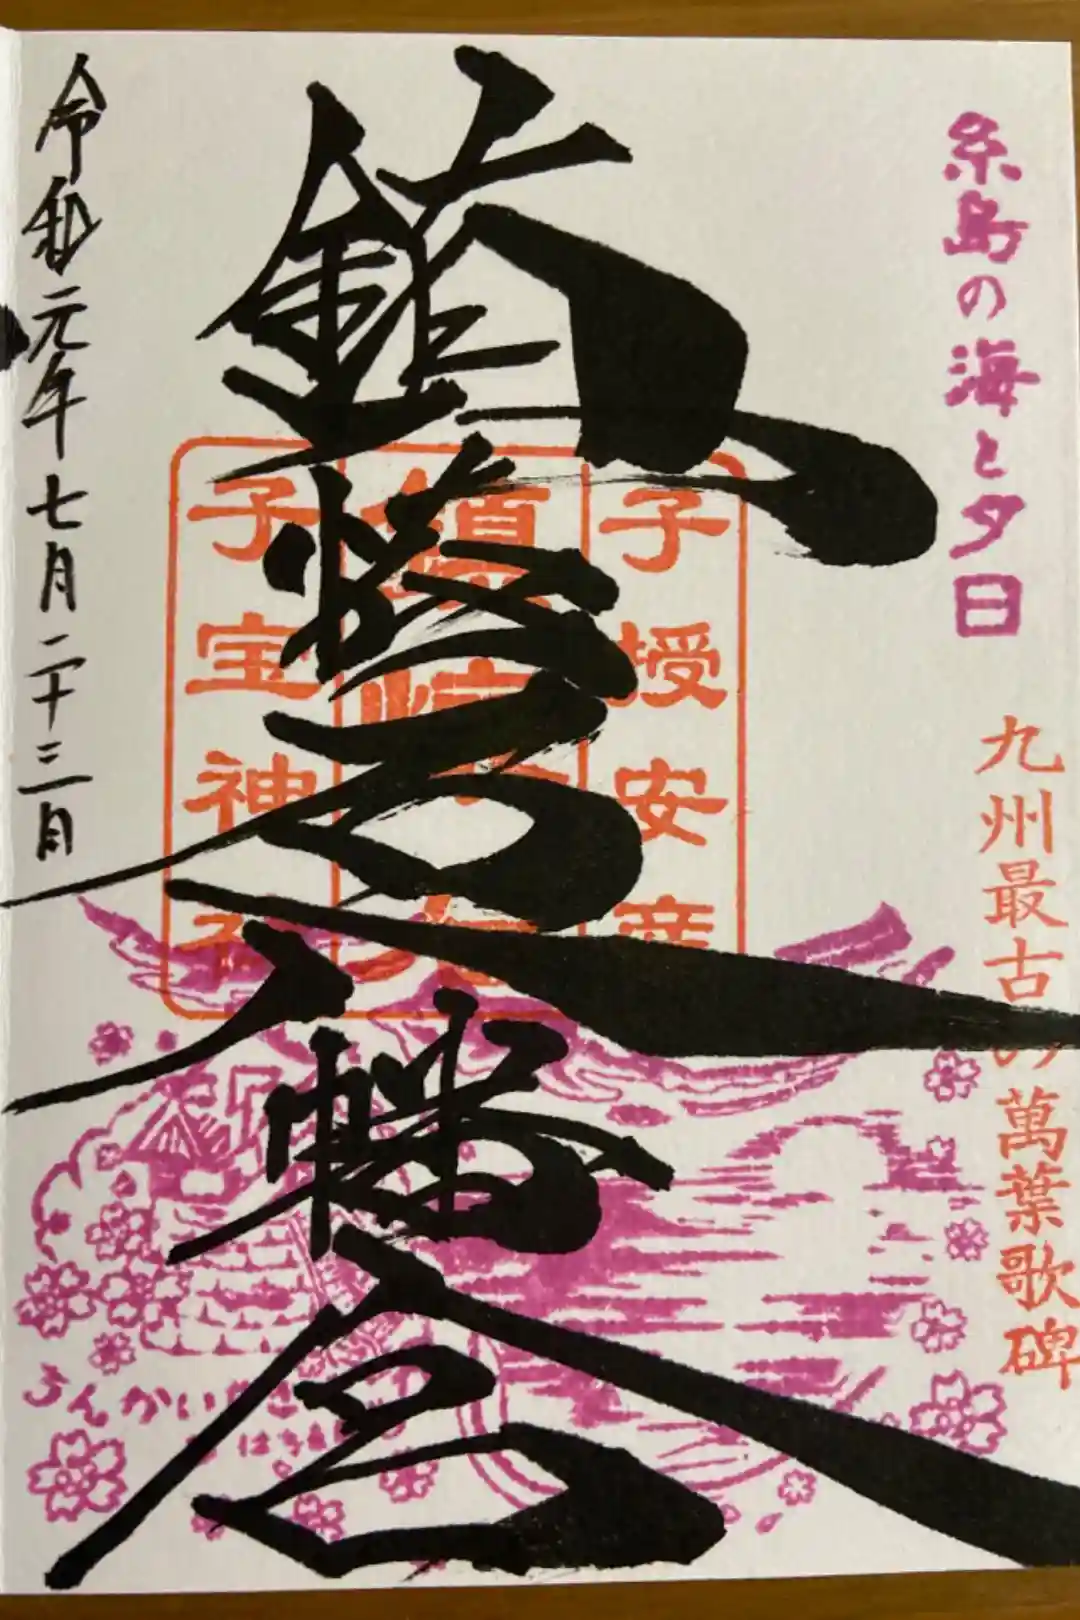 糸島の海と夕日
九州最古の萬葉歌碑
鎮懐石八幡宮
子授安産
子宝神社
令和元年七月二十三日
ちんかいせき